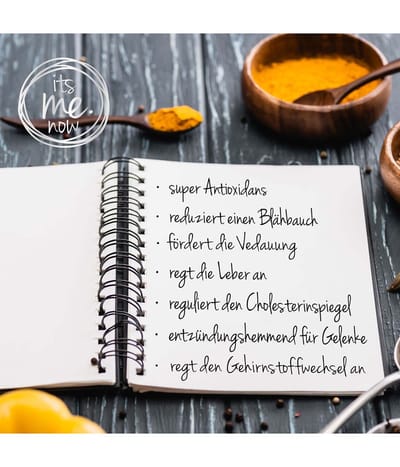 its
me.
now
· super Antioxidans
· reduziert einen Blähbauch
· fördert die Vedauung
· regt die Leber an
· reguliert den Cholesterinspiegel
· entzündungshemmend für Gelenke
· regt den Gehirnstoffwechsel an